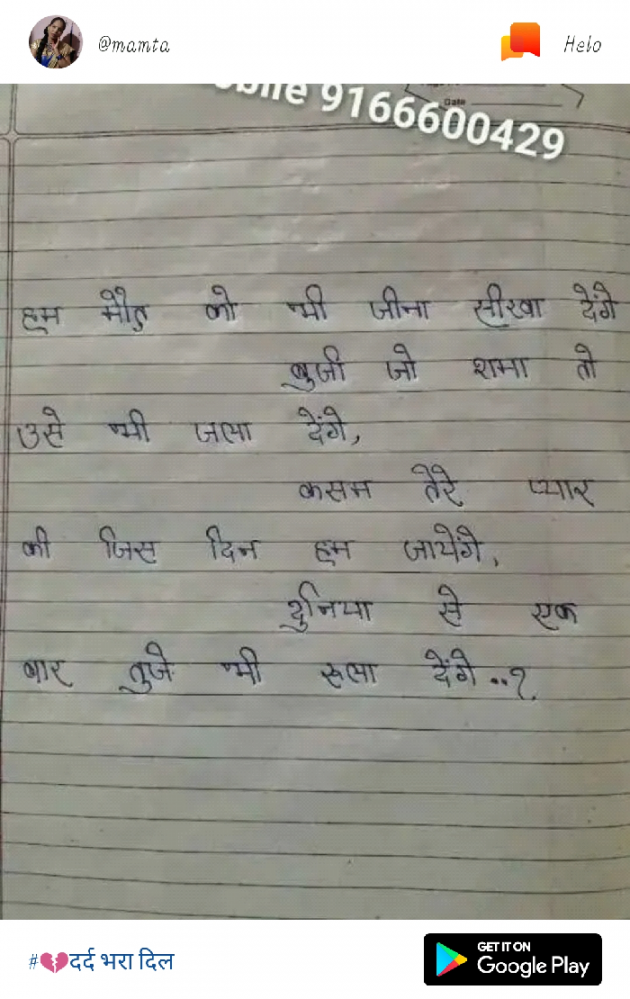 @mamta
Helo
9166600429
Date
हम मौत को भी जीना सीखा देंगे
बुजी जो शमा तो
उसे भी जला देंगे,
कसम तेरे प्यार
की जिस दिन हम जायेंगे,
दुनिया से एक
बार तुजे भी रूला देंगे..?.
#💔दर्द भरा दिल
GET IT ON
Google Play